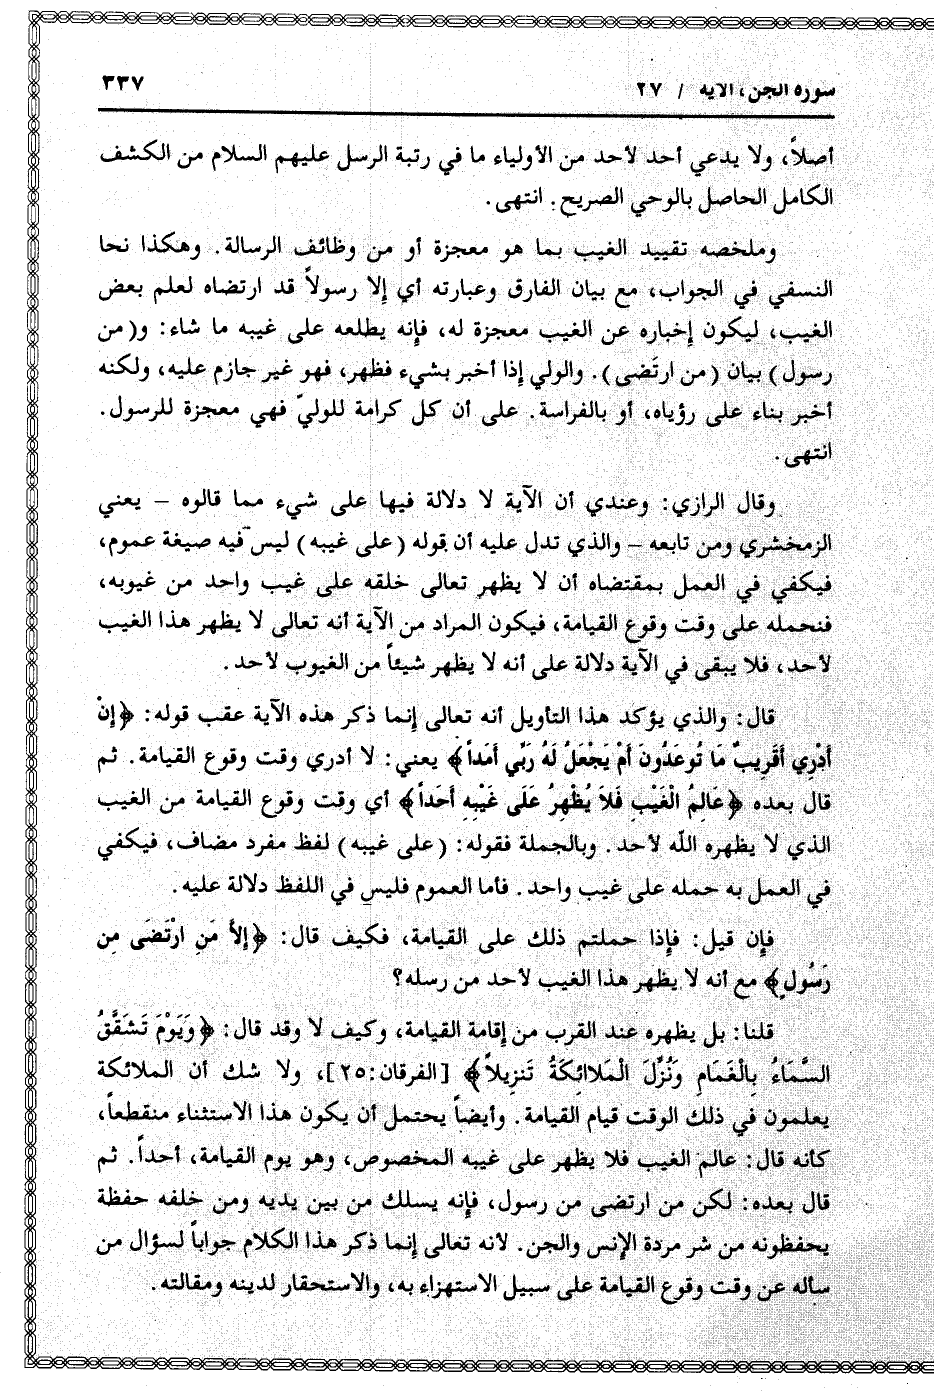 سورة الجن، الآية / ٢٧
٣٣٧
أصلاً، ولا يدعي أحد لأحد من الأولياء ما في رتبة الرسل عليهم السلام من الكشف
الكامل الحاصل بالوحي الصريح. انتهى.
وملخصه تقييد الغيب بما هو معجزة أو من وظائف الرسالة. وهكذا نحا
النسفي في الجواب، مع بيان الفارق وعبارته أي إلا رسولاً قد ارتضاه لعلم بعض
الغيب، ليكون إخباره عن الغيب معجزة له، فإنه يطلعه على غيبه ما شاء: و(من
رسول) بيان (من ارتَضى). والولي إذا أخبر بشيء فظهر، فهو غير جازم عليه، ولكنه
أخبر بناء على رؤياه، أو بالفراسة. على أن كل كرامة للوليّ فهي معجزة للرسول.
انتهى.
وقال الرازي: وعندي أن الآية لا دلالة فيها على شيء مما قالوه – يعني
الزمخشري ومن تابعه – والذي تدل عليه أن قوله (على غيبه) ليس فيه صيغة عموم،
فيكفي في العمل بمقتضاه أن لا يظهر تعالى خلقه على غيب واحد من غيوبه،
فنحمله على وقت وقوع القيامة، فيكون المراد من الآية أنه تعالى لا يظهر هذا الغيب
لأحد، فلا يبقى في الآية دلالة على أنه لا يظهر شيئاً من الغيوب لأحد.
قال: والذي يؤكد هذا التأويل أنه تعالى إنما ذكر هذه الآية عقب قوله: ﴿إِنْ
أَدْرِي أَقَرِيبٌ مَا تُوعَدُونَ أَمْ يَجْعَلُ لَهُ رَبِّي أَمَداً﴾ يعني: لا أدري وقت وقوع القيامة. ثم
قال بعده ﴿عَالِمُ الْغَيْبِ فَلاَ يُظْهِرُ عَلَى غَيْبِهِ أَحَداً﴾ أي وقت وقوع القيامة من الغيب
الذي لا يظهره اللّه لأحد. وبالجملة فقوله: (على غيبه) لفظ مفرد مضاف، فيكفي
في العمل به حمله على غيب واحد. فأما العموم فليس في اللفظ دلالة عليه.
فإن قيل: فإذا حملتم ذلك على القيامة، فكيف قال: ﴿إِلاَّ مَنِ ارْتَضَى مِن
رَسُولٍ﴾ مع أنه لا يظهر هذا الغيب لأحد من رسله؟
قلنا: بل يظهره عند القرب من إقامة القيامة، وكيف لا وقد قال: ﴿وَيَوْمَ تَشَقَّقُ
السَّمَاءُ بِالْغَمَامِ وَنُزِّلَ الْمَلاائِكَةُ تَنزِيلاً﴾ [الفرقان:٢٥]، ولا شك أن الملائكة
يعلمون في ذلك الوقت قيام القيامة. وأيضاً يحتمل أن يكون هذا الاستثناء منقطعاً،
كأنه قال: عالم الغيب فلا يظهر على غيبه المخصوص، وهو يوم القيامة، أحداً. ثم
قال بعده: لكن من ارتضى من رسول، فإنه يسلك من بين يديه ومن خلفه حفظة
يحفظونه من شر مردة الإنس والجن. لأنه تعالى إنما ذكر هذا الكلام جواباً لسؤال من
سأله عن وقت وقوع القيامة على سبيل الاستهزاء به، والاستحقار لدينه ومقالته.